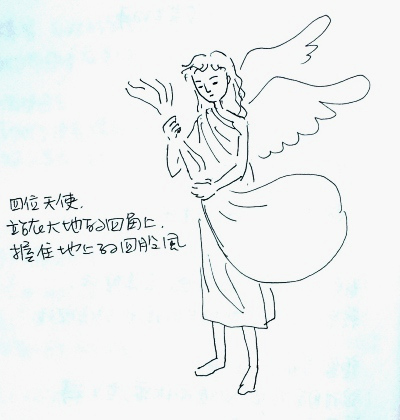 四位天使.
站在大地的四角上.
握住地上的四股风